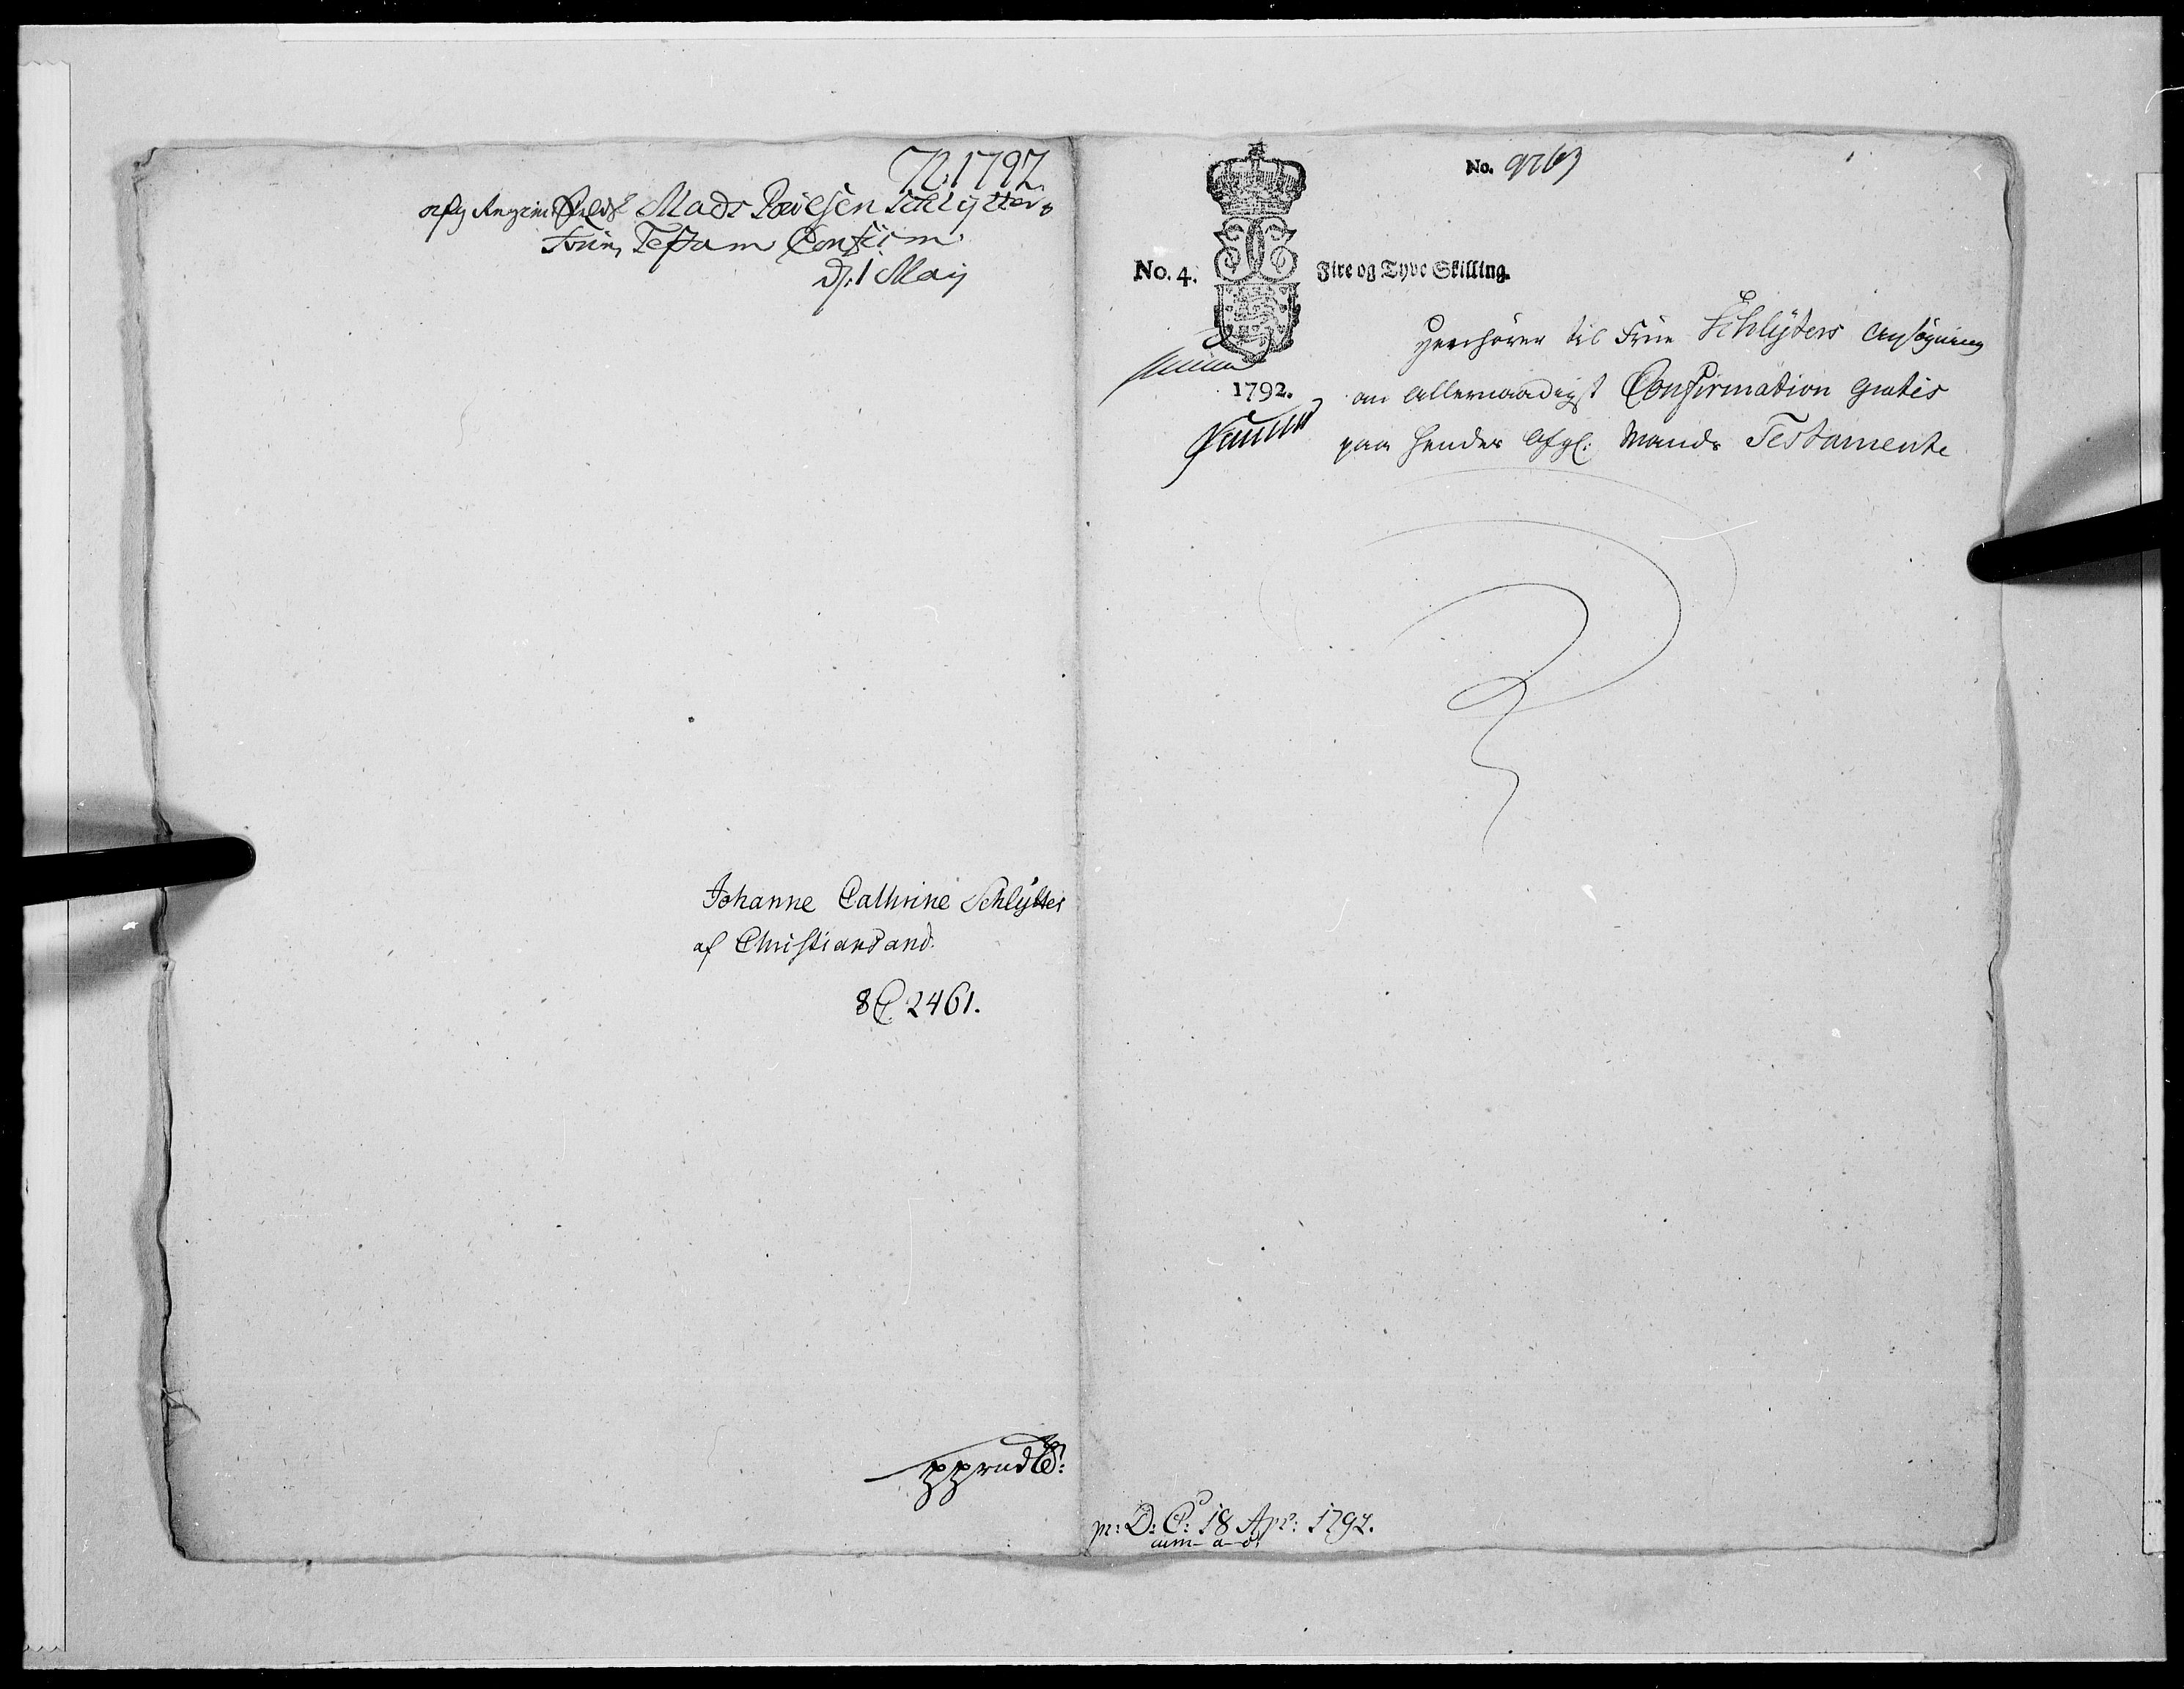 N 1792
afg Regim Qvd Mads Poulsen Schlytters
Frue, Testam Confirm
D. 1 Maij
Johanne Cathrine Schlytter
af Christiansand.
8 C. 2461.
No. 9763
No. 4. Fire og Tyve Skilling.
1792.
Henhører til Frue Schlÿters Ansøgning
om allernaadigst Confirmation gratis
paa hendes Afg: Mands Testamente
pr: D: C: 18 Apr: 1792.
cum a-d.